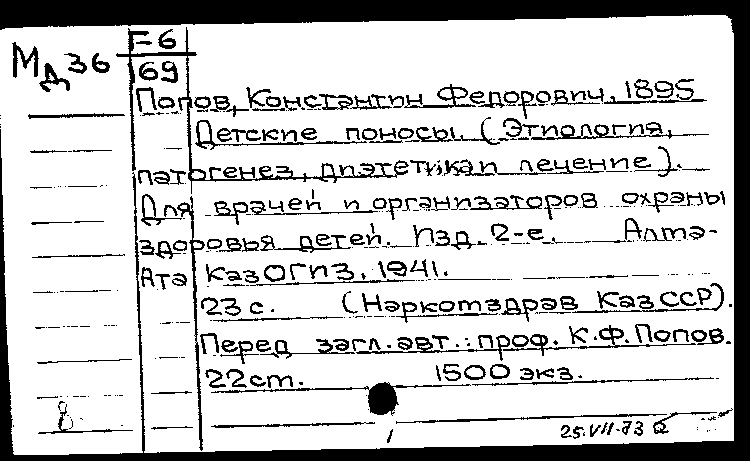 Мд36 F-6
169
Попов, Константин Федорович, 1895
Детские поносы. (Этиология,
патогенез, диэтетика и лечение).
Для врачей и организаторов охраны
здоровья детей. Изд. 2-е. Алма-
Ата КазОГИЗ, 1941.
23 с. (Наркомздрав КазССР).
Перед загл. авт.: проф. К.Ф. Попов.
22 см. 1500 экз.
8.
25.VII-73